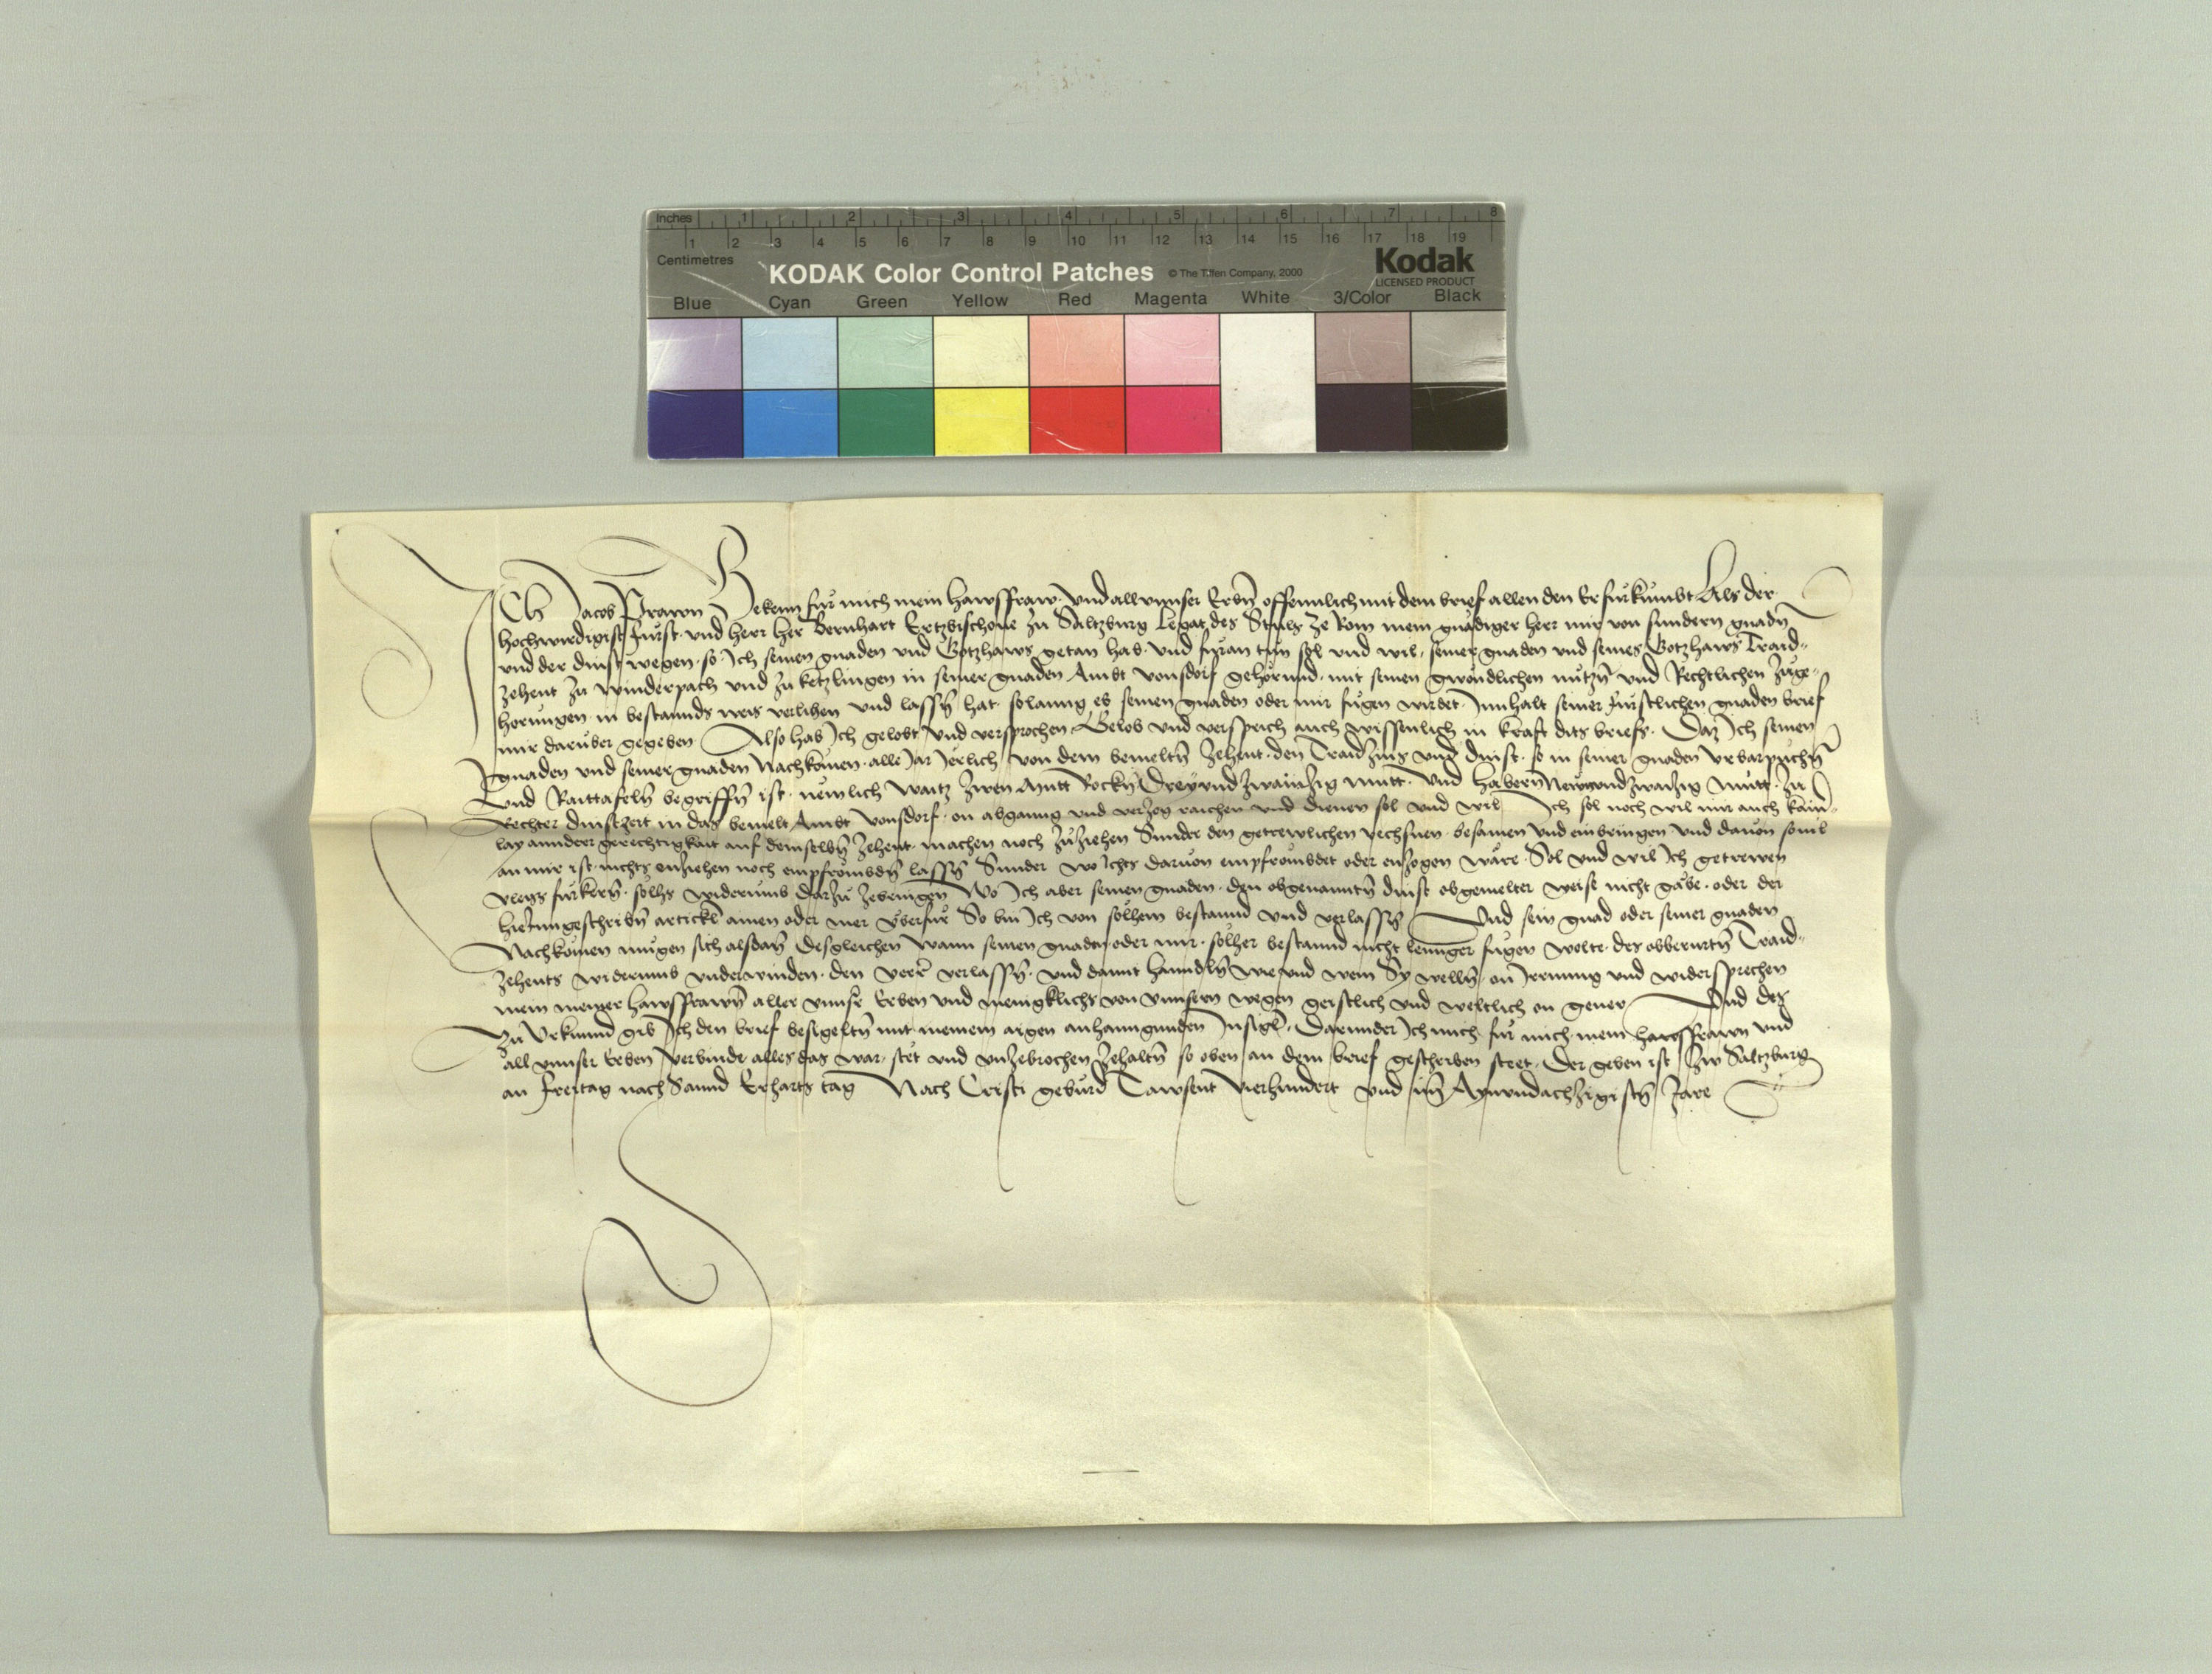 Inches 1 2 3 4 5 6 7 8
1 2 3 4 5 6 7 8 9 10 11 12 13 14 15 16 17 18 19
Centimetres
KODAK Color Control Patches © The Tiffen Company, 2000 Kodak
LICENSED PRODUCT
Blue Cyan Green Yellow Red Magenta White 3/Color Black
ICh Jacob Prawn Bekenn für mich mein hawsfraw. Vnd all vnnser Erbn̄ offennlich mit dem brief allen den Er fürkumbt Als der
hochwirdigist Fürst. vnd herr her Bernhart Ertzbischoue zu Saltzburg Legat des Stuls ze Rom mein gnädiger herr mir von sundern gnadn̄
vnd der dinst wegen. so Ich seinen gnaden vnd Gotzhaws getan hab. vnd füran tun sol vnd wil. seiner gnaden vnd seines Gotzhaws Traid-
zehent zu Winderpach vnd zu ketzlingen in seiner gnaden Ambt vonsdorf gehörund. mit seinen gwöndlichen nützn̄ vnd Rechtlichen Zuge-
horungen. in bestannds weis verlihen vnd lassn̄ hat. solanng es seinen gnaden oder mir fügen wirdet. Innhalt seiner fürstlichen gnaden brief
mir darüber gegeben Also hab Ich gelobt vnd versprochen. Gelob vnd versprich auch wissenlich in kraft dits briefs. Daz Ich seinen
gnaden vnd seiner gnaden Nachkomen. alle Jar Jerlich von dem bemeltn̄ Zehent. den Traidzins vnd dinst. so in seiner gnaden Vrbarpüchn̄
Vnd Raittafeln̄ begriffn̄ ist. nemlich Waitz Zwen Mutt Rockn̄ Dreyvndzwaintzig mutt. Vnd habern̄ Newnvndzwaintzig mutt. zu
Rechter dinstzeit in das bemelt Ambt Vonsdorf. on abganng vnd verzog raichen vnd dienen sol vnd wil Ich sol noch wil mir auch kain-
lay annder gerechtigkait auf demselbn̄ Zehent. machen noch zuziehen Sunder den getrewlichen vechsnen. besamen vnd einbringen vnd dauon souil
an mir ist. nichts enziehen noch empfrömbdn̄ lassn̄ Sunder wo ichts daruon empfrömbdet oder enzogen wäre. Sol vnd wil Ich getrewen
vleiss fürkern̄. solhs widerumb darzu zebringen Wo Ich aber seinen gnaden. den obgenanntn̄ dinst obgemelter weise nicht gäbe. oder der
hierinngeschribn̄ artickl ainen oder mer vberfür So bin Ich von solhem bestannd vnd verlassn̄ Vnd sein gnad oder seiner gnaden
Nachkomen mugen sich alsdan̄ Desgleichen Wann seinen gnaden oder mir. solher bestannd nicht lennger fügen wolte. des obberurtn̄ Traid-
zehents widerumb vnderwinden. den verr verlassn̄. vnd damit hanndln̄ wie vnd wem Sy welln̄. on Irrung vnd widersprechen
mein meiner hawsfrawn̄ aller vnnser Erben vnd menigklichs von vnnsern wegen geistlich vnd weltlich on geuer Vnd des
zu Vrkund gib Ich den brief besigeltn̄ mit meinem aigen anhanngunden Insigl. Darunder Ich mich. für mich mein hawsfrawn vnd
all vnnser Erben Verbinde alles das war. stet vnd vnzebrochen zehaltn̄ so oben an dem brief geschriben steet. Der geben ist Zw Saltzburg
an Freitag nach Sannd Erharts tag Nach Cristi geburd Tawsent Vierhundert vnd im Aynvndachtzigistn̄ Jare